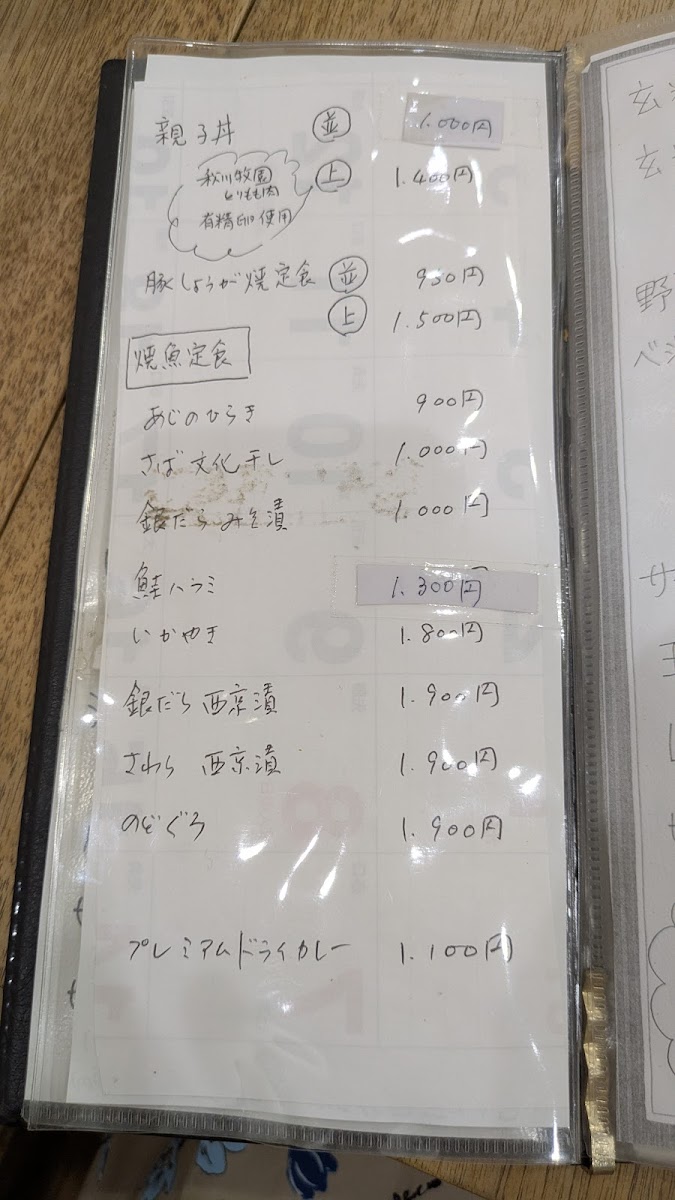 親子丼 並 1.000円
秋川牧園
とりもも肉
有精卵使用
上 1.400円
豚しょうが焼定食 並 950円
上 1.500円
焼魚定食
あじのひらき 900円
さば文化干し 1.000円
銀だらみそ漬 1.000円
鮭ハラミ 1.300円
いかやき 1.800円
銀だら 西京漬 1.900円
さわら 西京漬 1.900円
のどぐろ 1.900円
プレミアムドライカレー 1.100円
玄
玄
野
ベジ
サ